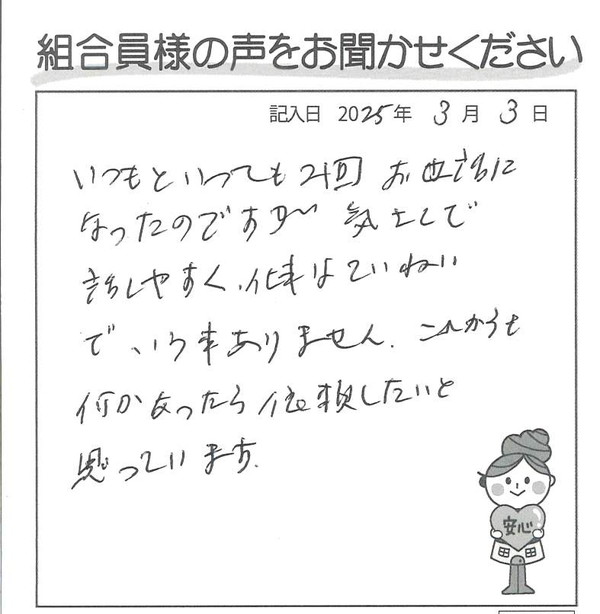 組合員様の声をお聞かせください
記入日 2025年 3月 3日
いつもといっても2回 お世話に
なったのですが 気さくで
話しやすく、仕事はていねい
で、いう事ありません。これからも
何かあったら依頼したいと
思っています。
安心